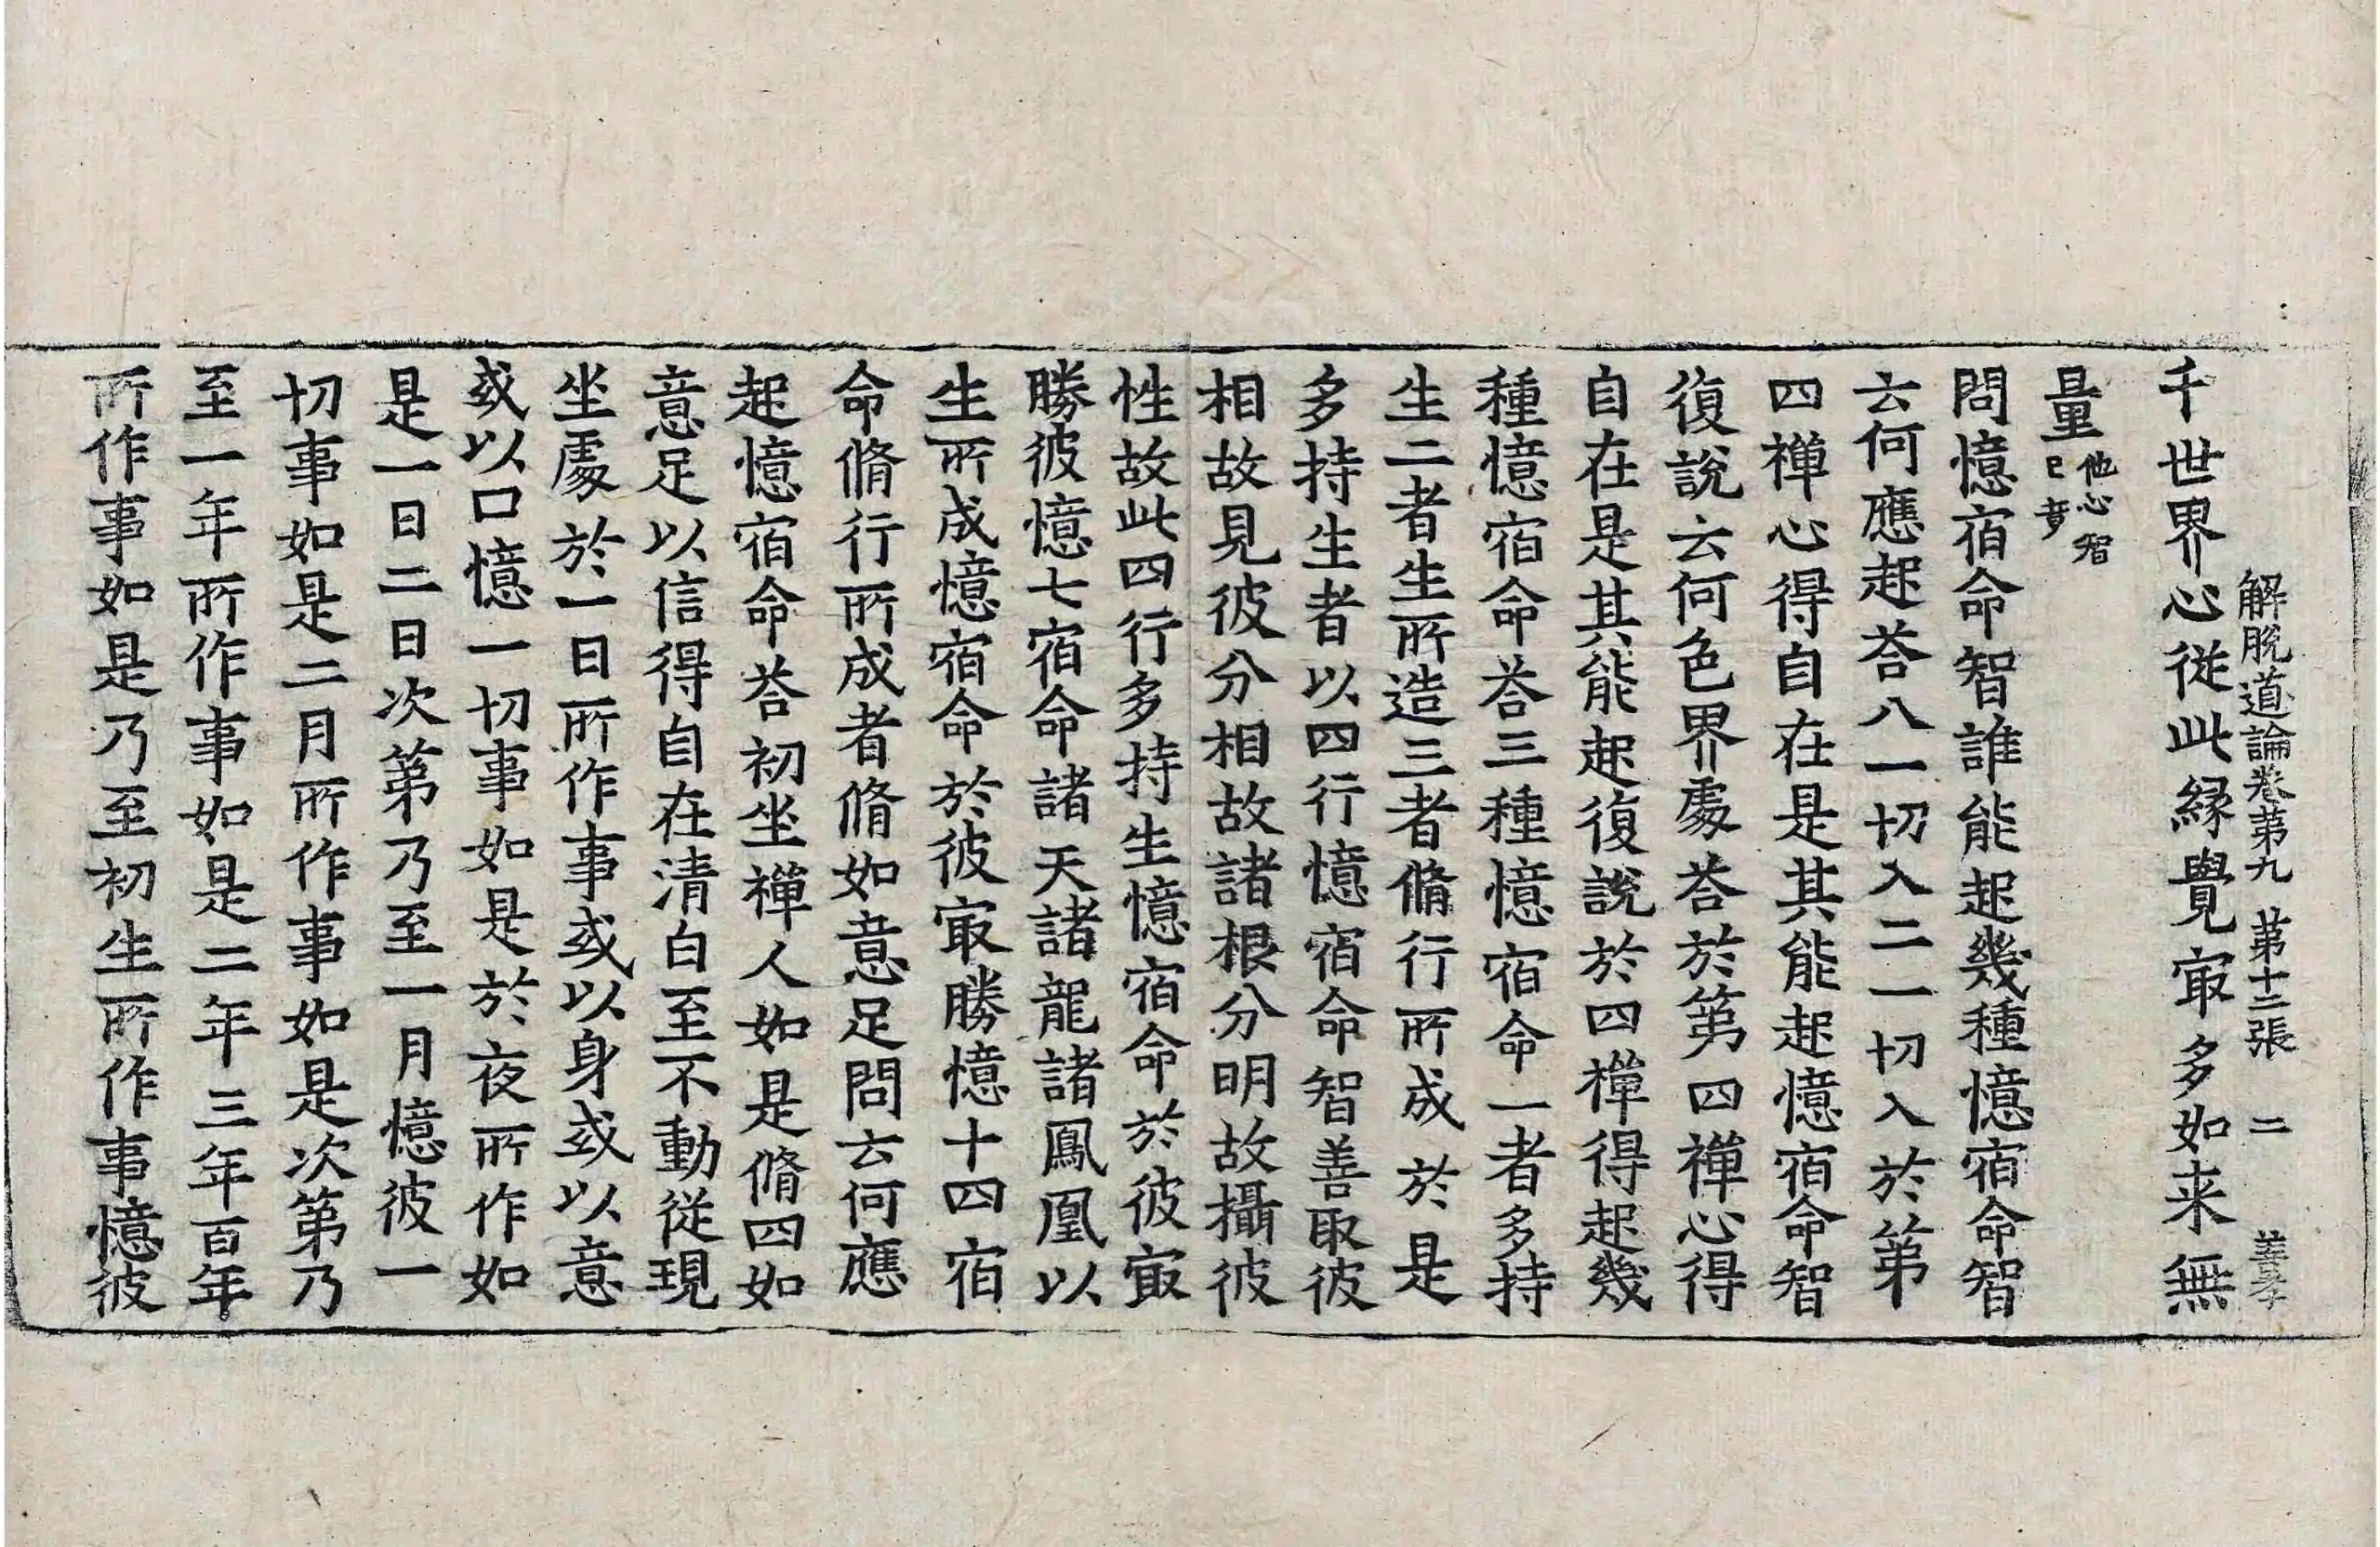 解脫道論卷第九 第十二張 二 善孝
千世界心從此緣覺㝡多如来無
量他心智已竟
問憶宿命智誰能起幾種憶宿命智
云何應起荅八一切入二一切入於第
四禪心得自在是其能起憶宿命智
復說云何色界處荅於第四禪心得
自在是其能起復說於四禪得起幾
種憶宿命荅三種憶宿命一者多持
生二者生所造三者脩行所成於是
多持生者以四行憶宿命智善取彼
相故見彼分相故諸根分明故攝彼
性故此四行多持生憶宿命於彼㝡
勝彼憶七宿命諸天諸龍諸鳳凰以
生所成憶宿命於彼㝡勝憶十四宿
命脩行所成者脩如意足問云何應
起憶宿命荅初坐禪人如是脩四如
意足以信得自在清白至不動從現
坐處於一日所作事或以身或以意
或以口憶一切事如是於夜所作如
是一日二日次第乃至一月憶彼一
切事如是二月所作事如是次第乃
至一年所作事如是二年三年百年
所作事如是乃至初生所作事憶彼